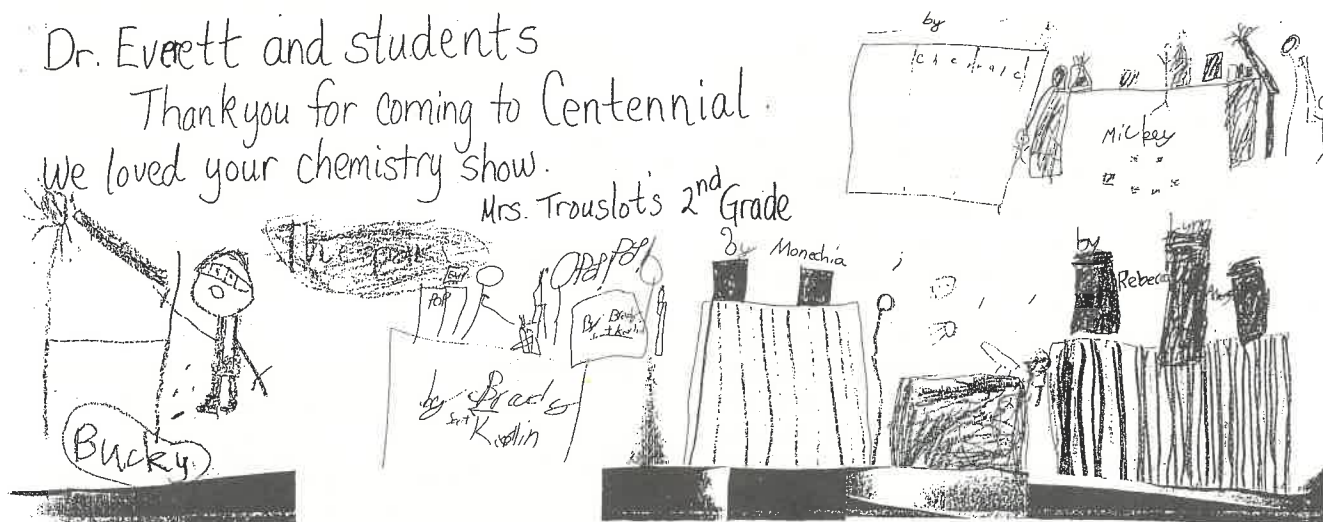 Dr. Everett and students
Thankyou for coming to Centennial.
We loved your chemistry show.
Mrs. Trouslot's 2nd Grade
by
Mickey
Bucky
The
POP
POP POP
by Brad &
Kaitlin
Monechia
by
Rebecca